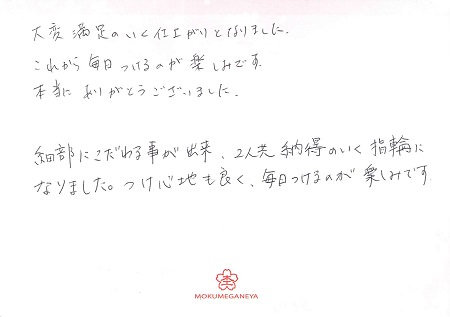 大変満足のいく仕上がりとなりました.
これから毎日つけるのが楽しみです.
本当にありがとうございました.
細部にこだわる事が出来、2人共納得のいく指輪に
なりました。つけ心地も良く、毎日つけるのが楽しみです.
MOKUMEGANEYA